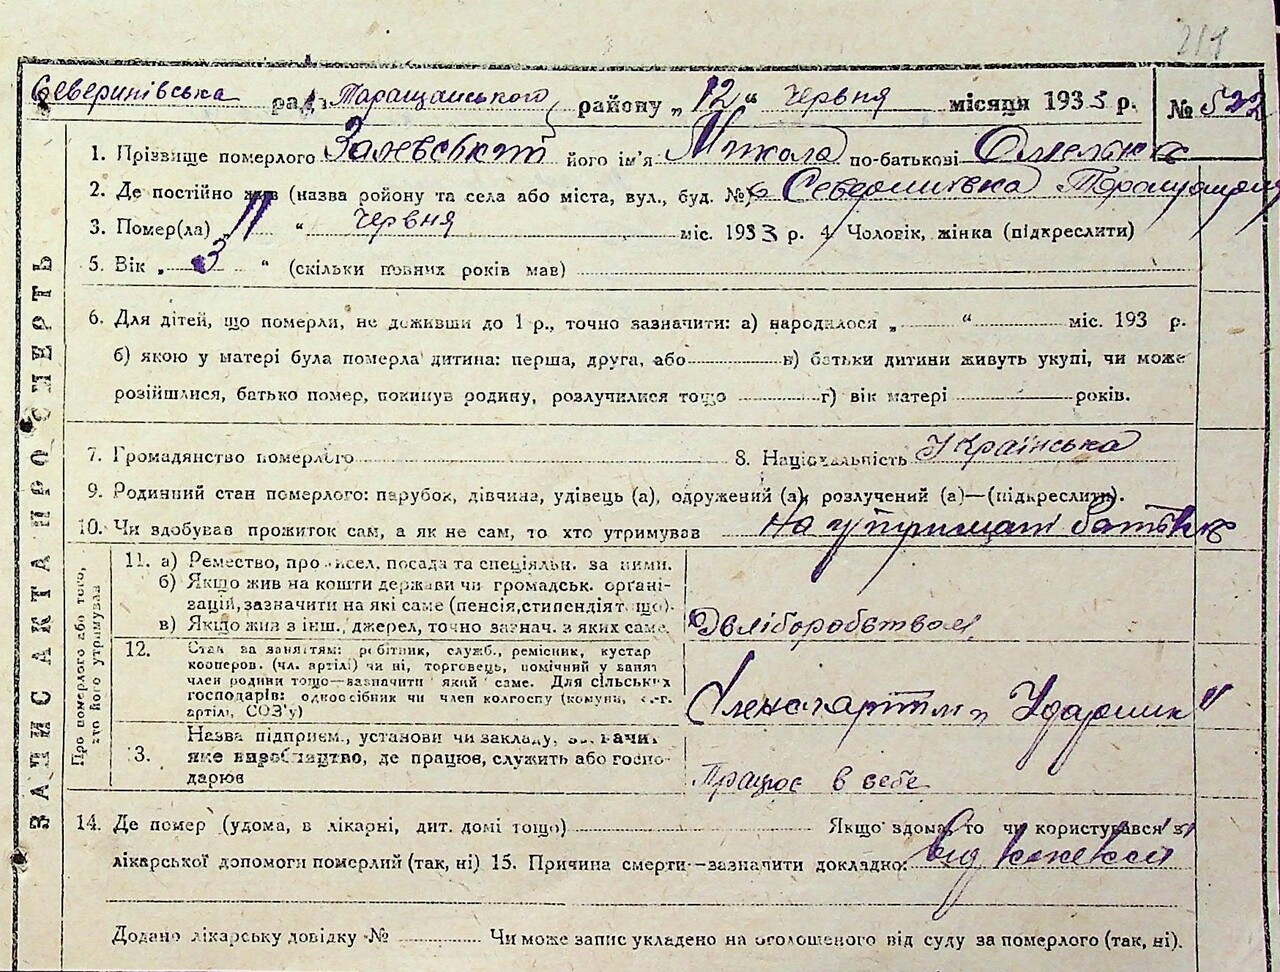 211
Северинівська рада Таращанського району „12“ Червня місяця 1933 р. № 522
1. Прізвище померлого Залевський його ім'я Микола по-батькові
2. Де постійно жив (назва ройону та села або міста, вул., буд. № с Северинівка
3. Помер(ла) „11“ Червня міс. 1933 р. 4. Чоловік, жінка (підкреслити)
5. Вік „ 3 “ (скільки повних років мав)
6. Для дітей, що померли, не доживши до 1 р., точно зазначити: а) народилося „ “ міс. 193 р.
б) якою у матері була померла дитина: перша, друга, або в) батьки дитини живуть укупі, чи може
розійшлися, батько помер, покинув родину, розлучилися тощо г) вік матері років.
7. Громадянство померлого 8. Національність Українська
9. Родинний стан померлого: парубок, дівчина, удівець (а), одружений (а), розлучений (а)—(підкреслити).
10. Чи здобував прожиток сам, а як не сам, то хто утримував на утриманні батьків
ЗАПИС АКТА ПРО СМЕРТЬ
Про померлого або того, хто його утримував
11. а) Ремество, промисел, посада та спеціяльн. за ними.
б) Якщо жив на кошти держави чи громадськ. органі-
зацій, зазначити на які саме (пенсія, стипендія тощо).
в) Якщо жив з інш., джерел, точно зазнач. з яких саме.
12. Стан за заняттям: робітник, служб., ремісник, кустар
кооперов. (чл. артілі) чи ні, торговець, помічний у занят
член родини тощо—зазначити який саме. Для сільських
господарів: одноосібник чи член колгоспу (комуни, с.-г.
артілі, СОЗ'у)
„Ударник“
Назва підприєм., установи чи закладу, зазначит
13. яке виробництво, де працює, служить або госпо-
дарює
Працює в себе
14. Де помер (удома, в лікарні, дит. домі тощо) Якщо вдома, то чи користувався з
лікарської допомоги померлий (так, ні) 15. Причина смерти—зазначити докладно: від
Додано лікарську довідку № Чи може запис укладено на оголошеного від суду за померлого (так, ні).